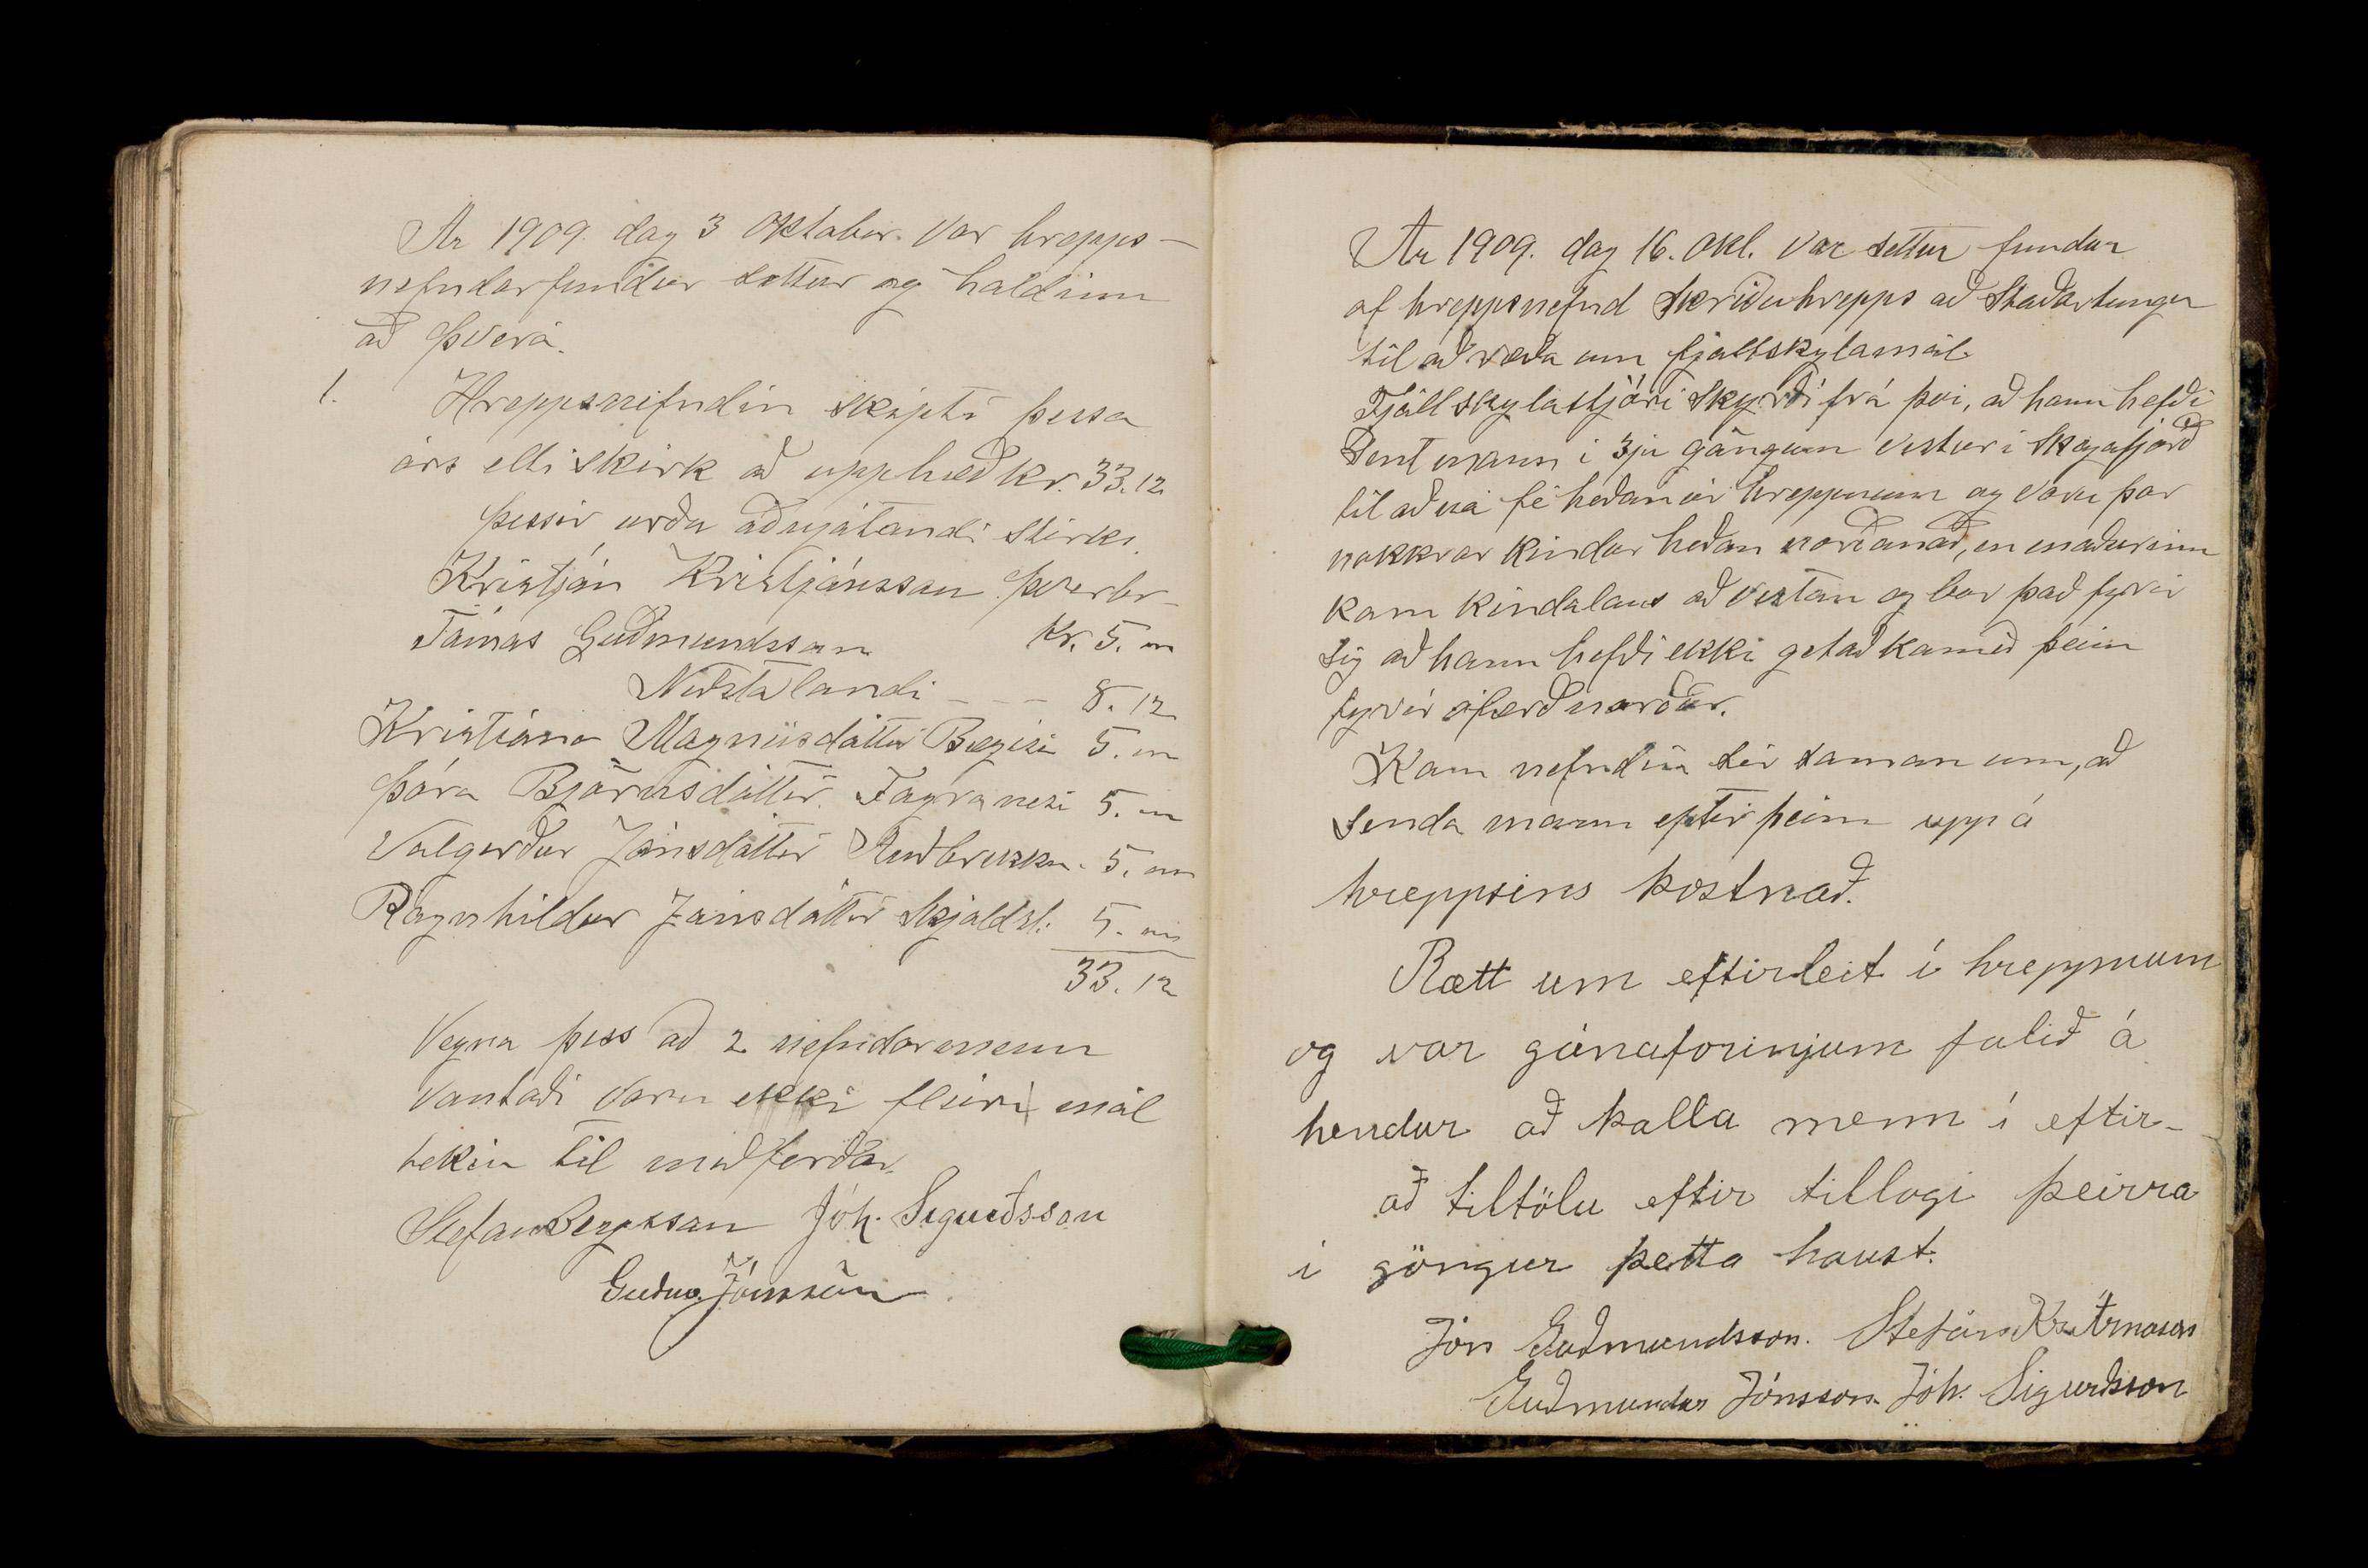 Ár 1909. dag 3 Oktober. var hrepps-
nefndarfundur settur og haldinn
að Þverá.
1. Hreppsnefndin skipti þessa
árs ellistirk að upphæð kr. 33.12
Þessir urðu aðnjótandi stirks.
Kristján Kristjánsson Þverbr-
Tómas Guðmundsson Kr. 5. "
Neðstalandi - - - 8. 12
Kristiana Magnúsdóttir Bægisá 5. "
Þóra Bjarnsdóttir. Fagranesi 5. "
Valgerður Jónsdóttir Auðbrekku. 5. "
Ragnhildur Jónsdóttir Skjaldst: 5. "
33. 12
Vegna þess að 2 nefndarmenn
vantaði voru ekki fleiri mál
tekin til meðferðar.
Stefan Bergsson Jóh. Sigurðsson
Guðm. Jónsson
Ár 1909. dag 16. Okt. var settur fundur
af hreppsnefnd Skriðuhrepps að Staðartungu
til að ræða um fjallskylamál.
Fjallskylastjóri skyrði frá því, að hann hefði
sent mann í 3ju gangum vestur í Skagafjörð
til að ná fé heðan úr hreppnum og voru þar
nokkrar kindur heðan norðanað, en maðurinn
kom kindalaus að vestan og bar það fyrir
sig að hann hefði ekki getað komið þeim
fyrir ófærð norður.
Kom nefndin sér saman um, að
senda mann eptir þeim upp á
hreppsins kostnað.
Rætt um eftirleit í hreppnum
og var gánaforinjum falið á
hendur að kalla menn í eftir-
að tiltölu eftir tillogi þeirra
í göngur þetta haust.
Jón Guðmundsson. Stefán Kr. Árnason
Guðmundur Jónsson. Jóh. Sigurðsson